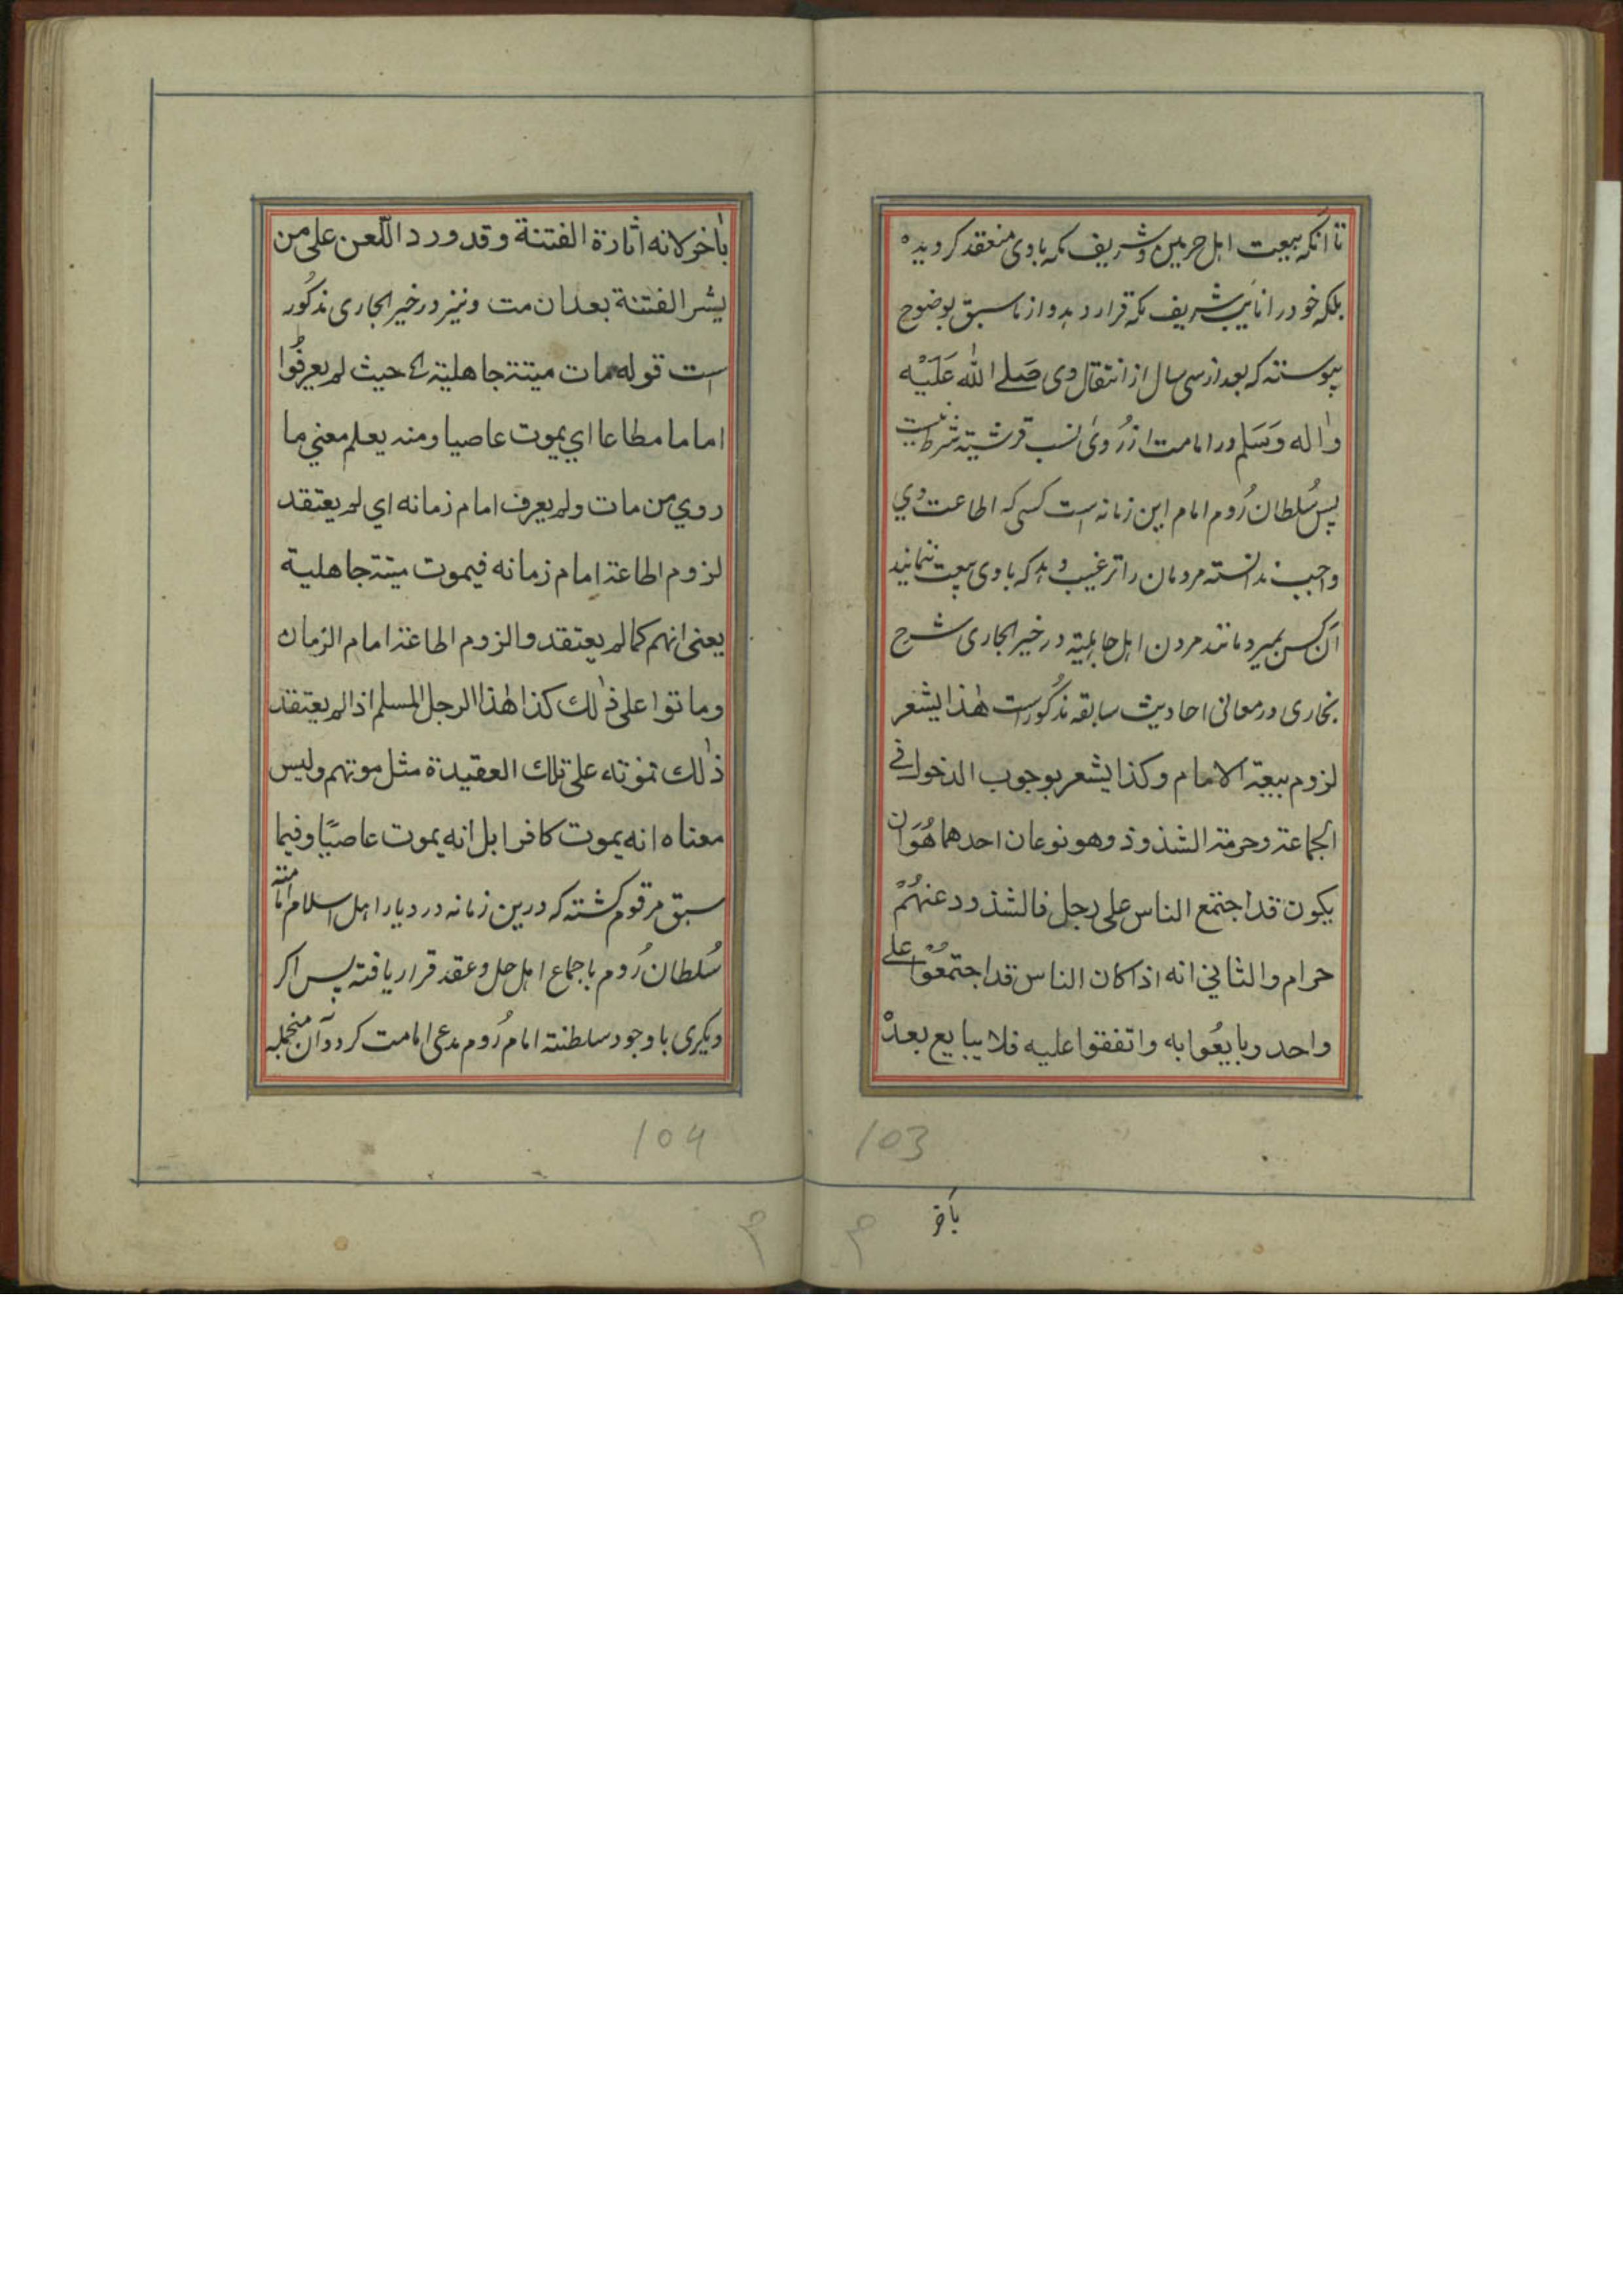 تا آنکه بیعت اهل حرمین و شریف مکه باوی منعقد کردیده
بلکه خود را نائب شریف مکه قرار دهد و از ما سبق بوضوح
پیوسته که بعد از سی سال از انتقال وی صَلے الله عَلَیْه
واله وَسَلم در امامت از رُوی نسب قرشیته شرط نیست
پس سُلطان رُوم امام این زمانه است کسی که اطاعت وی
واجب ندانسته مردمان را ترغیب دهد که باوی بیعت ننمایند
آن کس بمیرد مانند مردن اهل جاهلیته در خیر الجاری شرح
بخاری در معانی احادیث سابقه مذکور است هٰذا یشعر
لزوم بیعة الامام وکذا یشعر بوجوب الدخول فی
الجماعة وحرمة الشذوذ وهو نوعان احدهما هُوَ ان
یکون قد اجتمع الناس علی رجل فالشذوذ عنهُمْ
حرام والثاني انه اذا کان الناس قد اجتمعُوْا علے
واحد وبایعُوا به واتفقوا علیه فلا یبایع بعدهْ
103
باخر
بٰاخر لانه اثارة الفتنة وقد ورد اللّعن علی من
یشر الفتنة بعد ان مت ونیز در خیر الجاری مذکُور
است قوله مات میتة جاهلیة ای حیث لم یعرفُوا
اماما مطاعا اي یموت عاصیا ومنه یعلم معني ما
روي من مات ولم یعرف امام زمانه اي لم یعتقد
لزوم اطاعة امام زمانه فیموت میتة جاهلیة
یعنی انهم کما لم یعتقدوا لزوم اطاعة امام الزمان
وماتوا علی ذٰلك کذا هٰذا الرجل المسلم اذا لم یعتقد
ذٰلك تموته علی تلك العقیدة مثل موتهم ولیس
معناه انه یموت کافرا بل انه یموت عاصیًا وفیما
سبق مرقوم کشته که درین زمانه در دیار اهل اسلام امامته
سُلطان رُوم باجماع اهل حل وعقد قرار یافته پس اکر
دیکری با وجود سلطنته امام رُوم مدعی امامت کردد آن منجمله
104